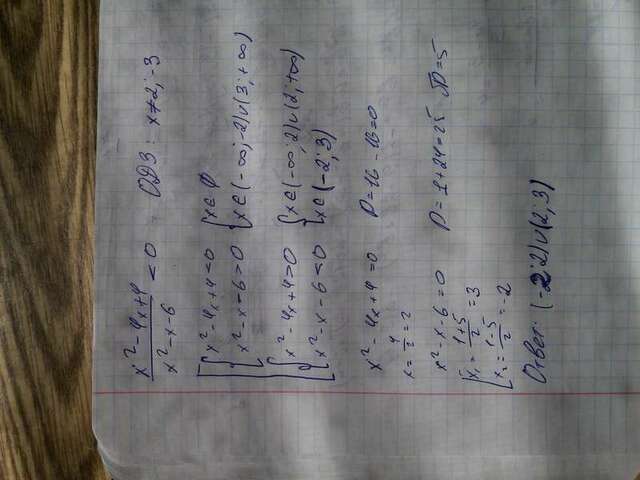 x² - 4x + 4 / x² - x - 6 < 0 ОДЗ: x ≠ 2; -3
[ { x² - 4x + 4 < 0 { x ∈ Ф
{ x² - x - 6 > 0 { x ∈ (-∞; -2) ∪ (3; +∞)
{ x² - 4x + 4 > 0 { x ∈ (-∞; 2) ∪ (2; +∞)
{ x² - x - 6 < 0 { x ∈ (-2; 3)
x² - 4x + 4 = 0 D = 16 - 16 = 0
x = 4/2 = 2
x² - x - 6 = 0 D = 1 + 24 = 25 √D = 5
[ x₁ = 1+5/2 = 3
x₂ = 1-5/2 = -2
Ответ: (-2; 2) ∪ (2; 3)